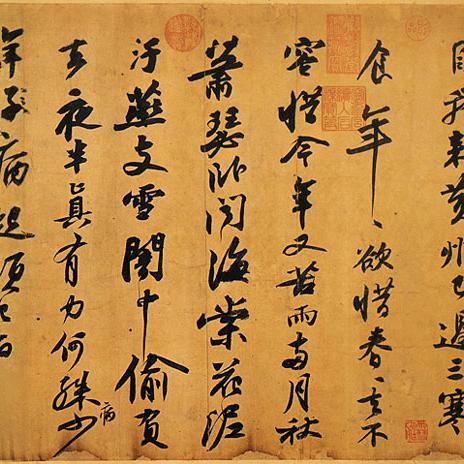 自我來黃州已過三寒
食年〻欲惜春〻去不
容惜今年又苦雨兩月秋
蕭瑟臥聞海棠花泥
汙燕支雪闇中偷負
去夜半真有力何殊病少
年子病起須已白